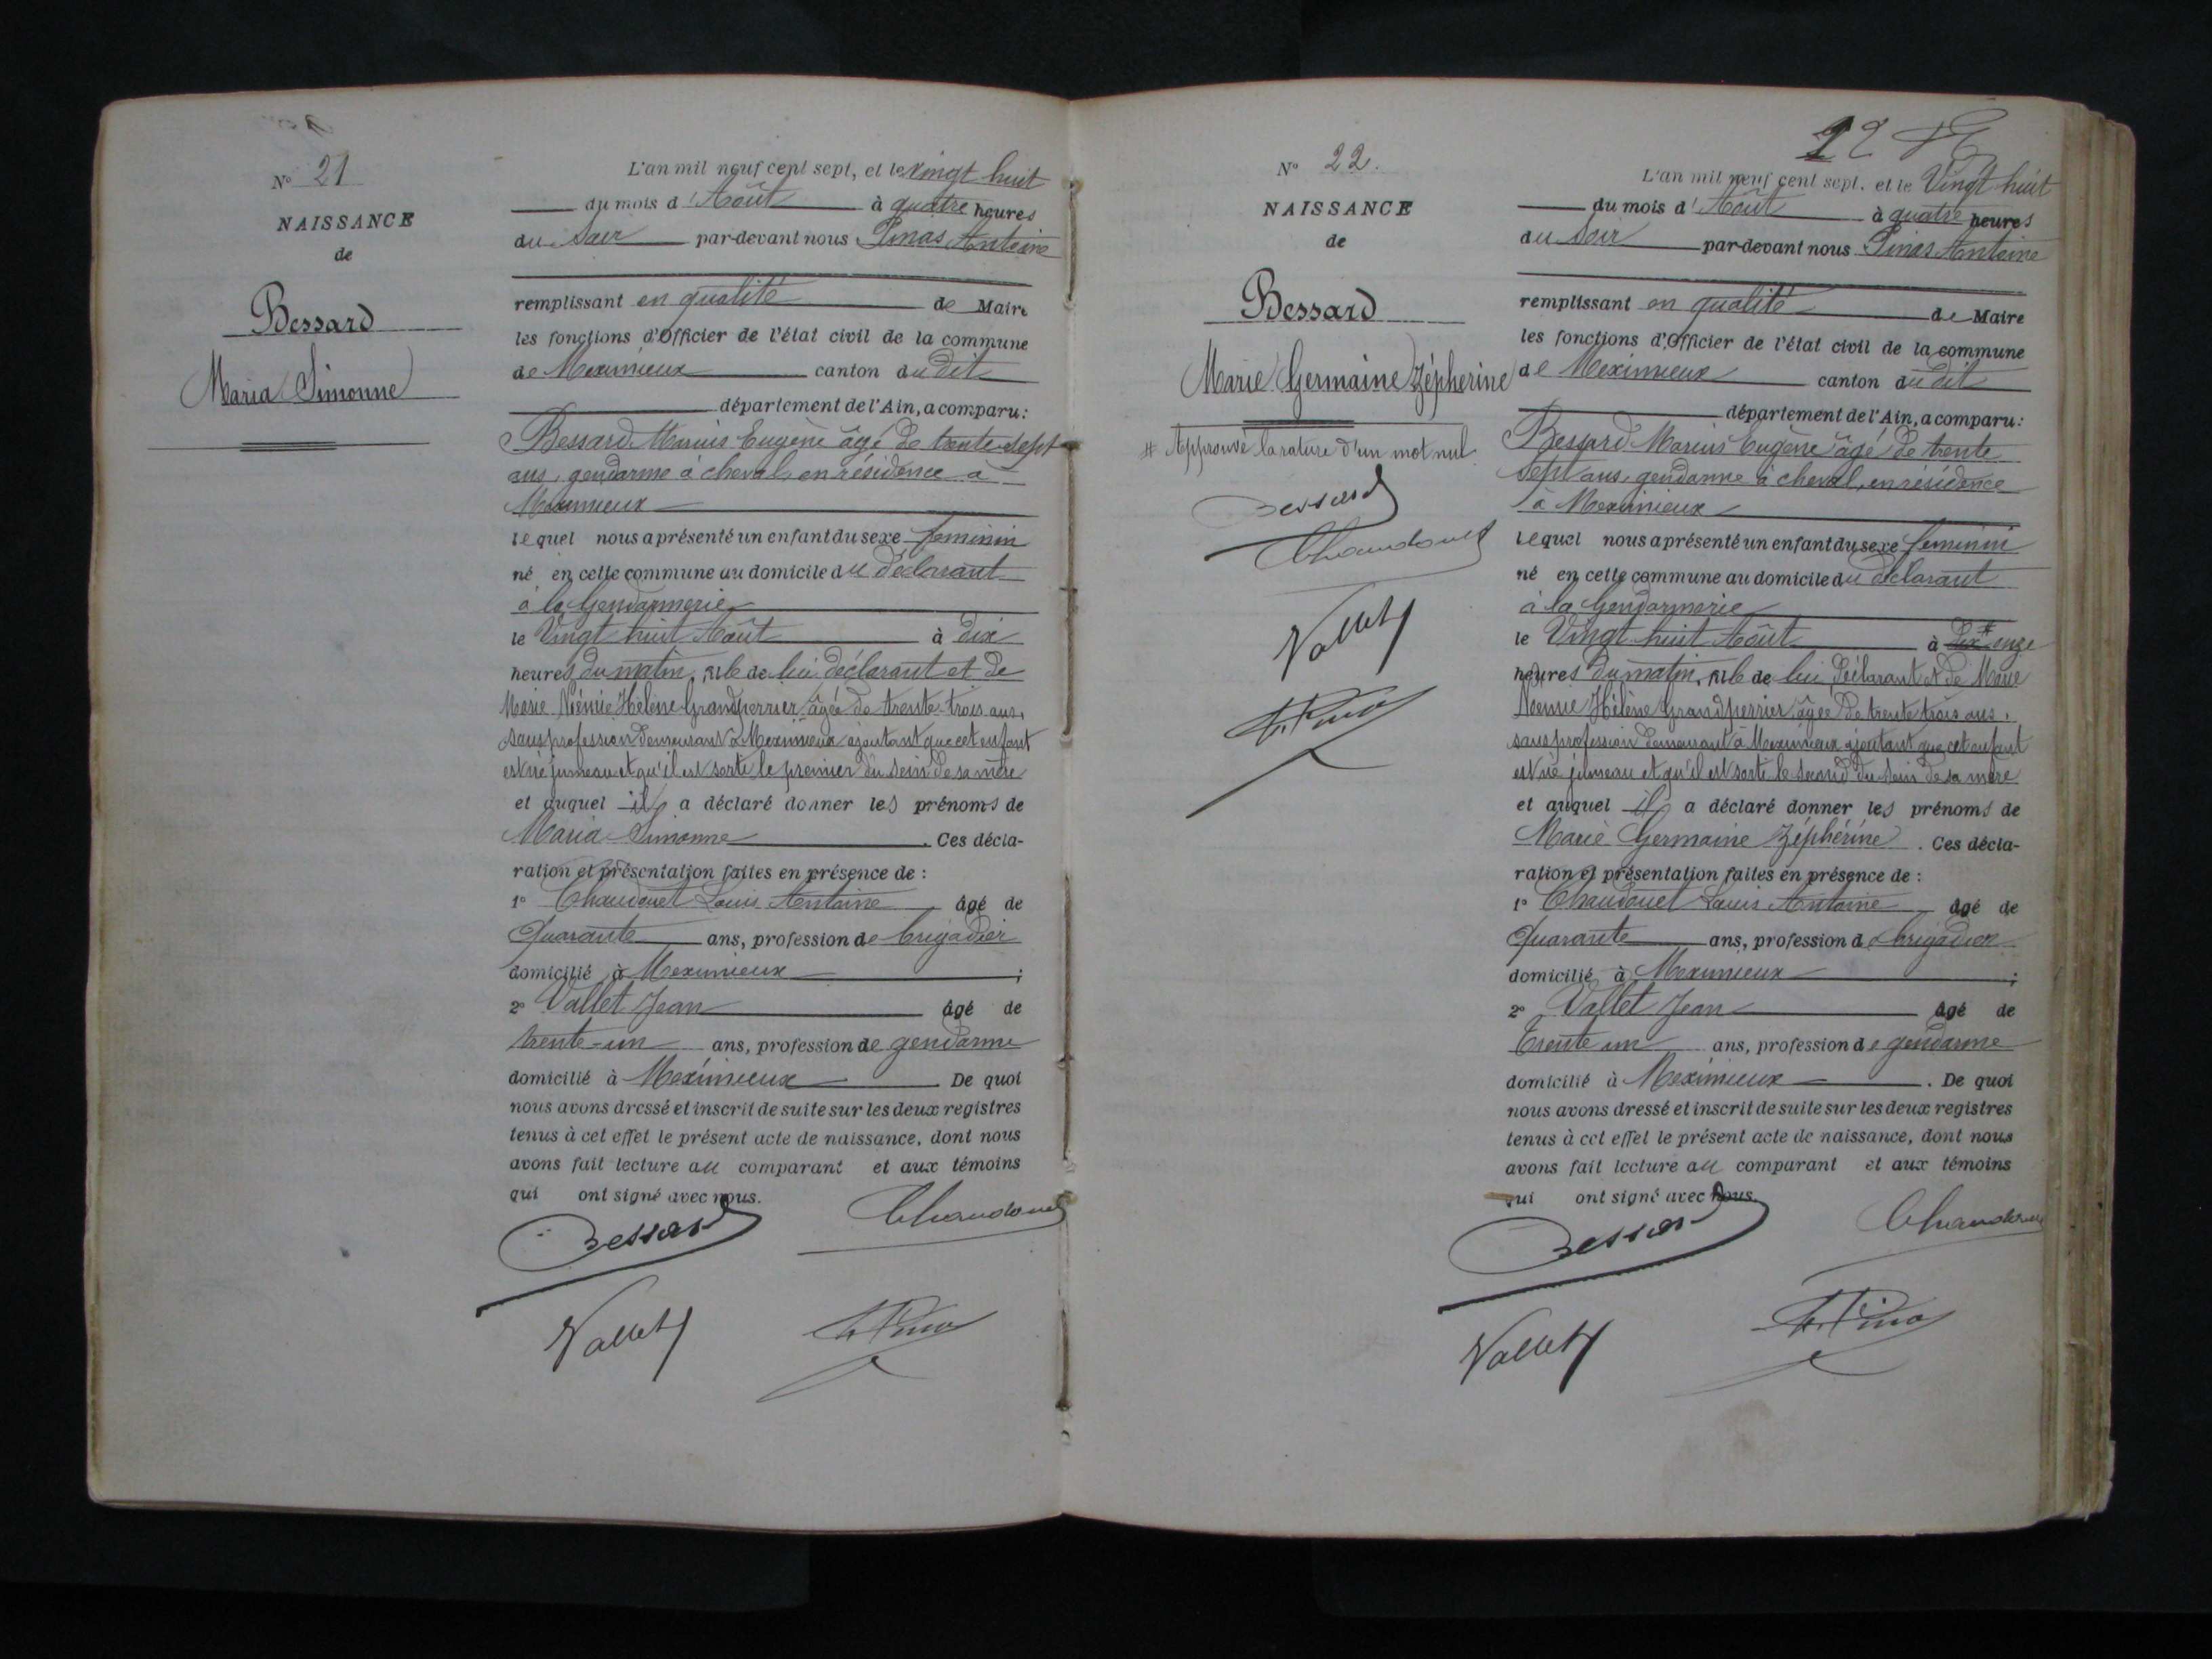 N° 21
NAISSANCE
de
Bessard
Maria Simonne
L'an mil neuf cent sept, et le vingt huit
du mois d'Août à quatre heures
du soir par-devant nous Pinas Antoine
remplissant en qualité de Maire
les fonctions d'Officier de l'état civil de la commune
de Meximieux canton du dit
département de l'Ain, a comparu:
Bessard Marius Eugène âgé de trente-sept
ans, gendarme à cheval, en résidence à
Meximieux
lequel nous a présenté un enfant du sexe feminin
né en cette commune au domicile du déclarant
à la Gendarmerie
le Vingt huit Août à dix
heures du matin, fils de lui déclarant et de
Marie Noémie Hélène Grandperrier âgée de trente-trois ans,
sans profession demeurant à Meximieux ajoutant que cet enfant
est né jumeau et qu'il est sorti le premier du sein de sa mère
et auquel il a déclaré donner les prénoms de
Maria Simonne. Ces décla-
ration et présentation faites en présence de :
1° Chaudouet Louis Antoine âgé de
Quarante ans, profession de brigadier
domicilié à Meximieux ;
2° Vallet Jean âgé de
trente-un ans, profession de gendarme
domicilié à Meximieux De quoi
nous avons dressé et inscrit de suite sur les deux registres
tenus à cet effet le présent acte de naissance, dont nous
avons fait lecture au comparant et aux témoins
qui ont signé avec nous.
Bessard Chaudouet
Vallet A. Pinas
22
N° 22.
NAISSANCE
de
Bessard
Marie Germaine Zépherine
# Approuvé la rature d'un mot nul
Bessard
Chaudouet
Vallet
A. Pinas
L'an mil neuf cent sept, et le Vingt huit
du mois d'Août à quatre heures
du soir par-devant nous Pinas Antoine
remplissant en qualité de Maire
les fonctions d'Officier de l'état civil de la commune
de Meximieux canton du dit
département de l'Ain, a comparu:
Bessard Marius Eugène âgé de trente
sept ans, gendarme à cheval, en résidence
à Meximieux
lequel nous a présenté un enfant du sexe feminin
né en cette commune au domicile du déclarant
à la Gendarmerie
le Vingt huit Août à dix # onze
heures du matin, fils de lui déclarant et de Marie
Noémie Hélène Grandperrier âgée de trente trois ans,
sans profession demeurant à Meximieux ajoutant que cet enfant
est né jumeau et qu'il est sorti le second du sein de sa mère
et auquel il a déclaré donner les prénoms de
Marie Germaine Zéphérine. Ces décla-
ration et présentation faites en présence de :
1° Chaudouet Louis Antoine âgé de
Quarante ans, profession de brigadier
domicilié à Meximieux ;
2° Vallet Jean âgé de
Trente un ans, profession de gendarme
domicilié à Meximieux. De quoi
nous avons dressé et inscrit de suite sur les deux registres
tenus à cet effet le présent acte de naissance, dont nous
avons fait lecture au comparant et aux témoins
qui ont signé avec nous.
Bessard Chaudouet
Vallet A. Pinas